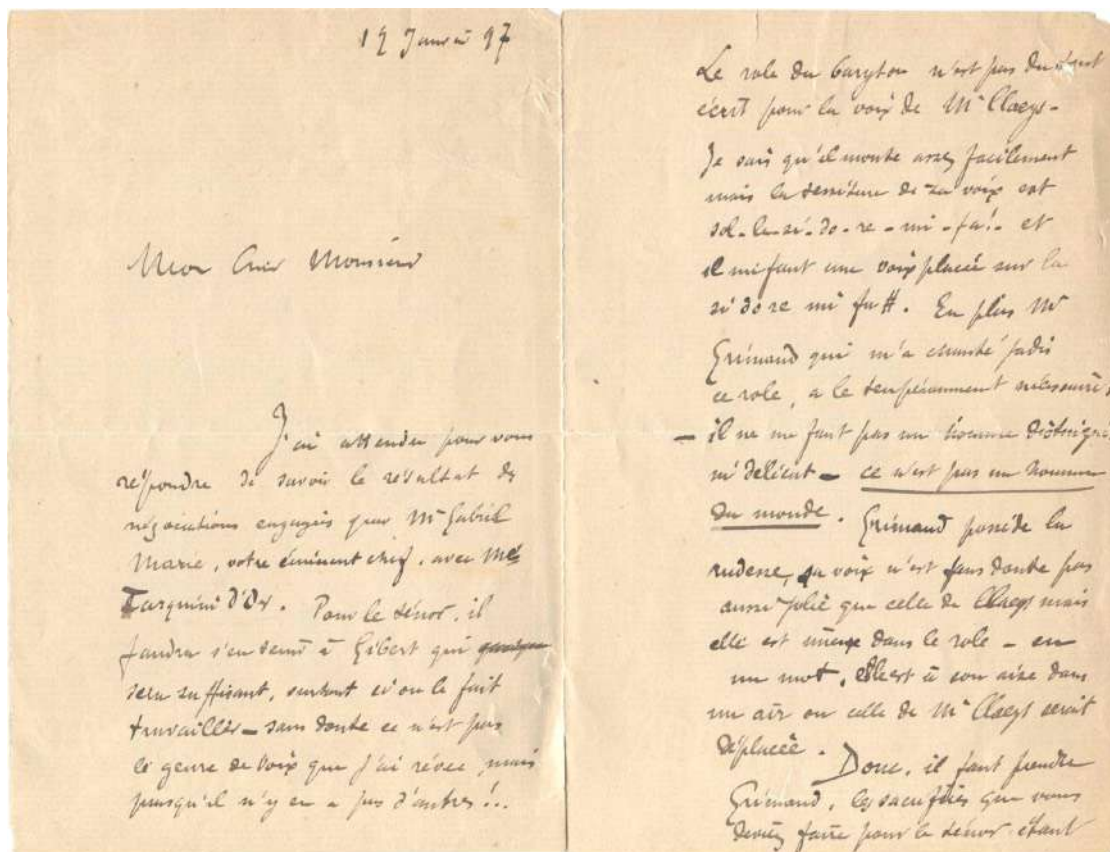 19 Janvier 97
Mon Cher Monsieur
J'ai attendu pour vous
répondre de savoir le résultat des
négociations engagées par Mr Gabriel
Marie, votre éminent chef, avec Mlle
Tarquini d'Or. Pour le ténor, il
faudra s'en tenir à Gibert qui
sera suffisant, surtout si on le fait
travailler – sans doute ce n'est pas
le genre de voix que j'ai rêvée, mais
puisqu'il n'y en a pas d'autres !..
Le role du baryton n'est pas du tout
écrit pour la voix de Mr Claeys –
Je sais qu'il monte assez facilement
mais la tessiture de sa voix est
sol - la - si - do - re - mi - fa! - et
il me faut une voix placée sur la
si do re mi fa #. En plus Mr
Grimaud qui m'a chanté jadis
ce role, a le tempéramment nécessaire,
– il ne me faut pas un homme distingué
ni délicat – ce n'est pas un homme
du monde. Grimaud possède la
rudesse, sa voix n'est sans doute pas
aussi jolie que celle de Claeys mais
elle est mieux dans le role – en
un mot, elle est à son aise dans
un air ou celle de Mr Claeys serait
déplacée.
Donc, il faut prendre
Grimaud, les sacrifices que vous
deviez faire pour le ténor étant